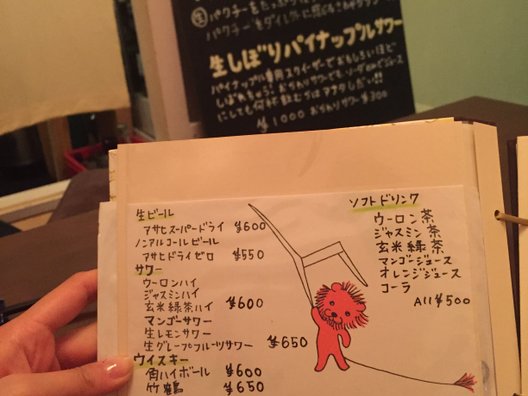 生 パクチーをたっぷり
生しぼりパイナップルサワー
パイナップル専用スライサーでおもしろいほど
しぼれちゃう。おかわりサワーでもソーダ割りでジュース
にしても何杯飲むかはアナタしだい!!
¥1000 おかわりサワー ¥300
生ビール
アサヒスーパードライ ¥600
ノンアルコールビール
アサヒドライゼロ ¥550
サワー
ウーロンハイ
ジャスミンハイ
玄米緑茶ハイ ¥600
マンゴーサワー
生レモンサワー
生グレープフルーツサワー ¥650
ウイスキー
角ハイボール ¥600
竹鶴 ¥650
ソフトドリンク
ウーロン茶
ジャスミン茶
玄米緑茶
マンゴージュース
オレンジジュース
コーラ
All ¥500